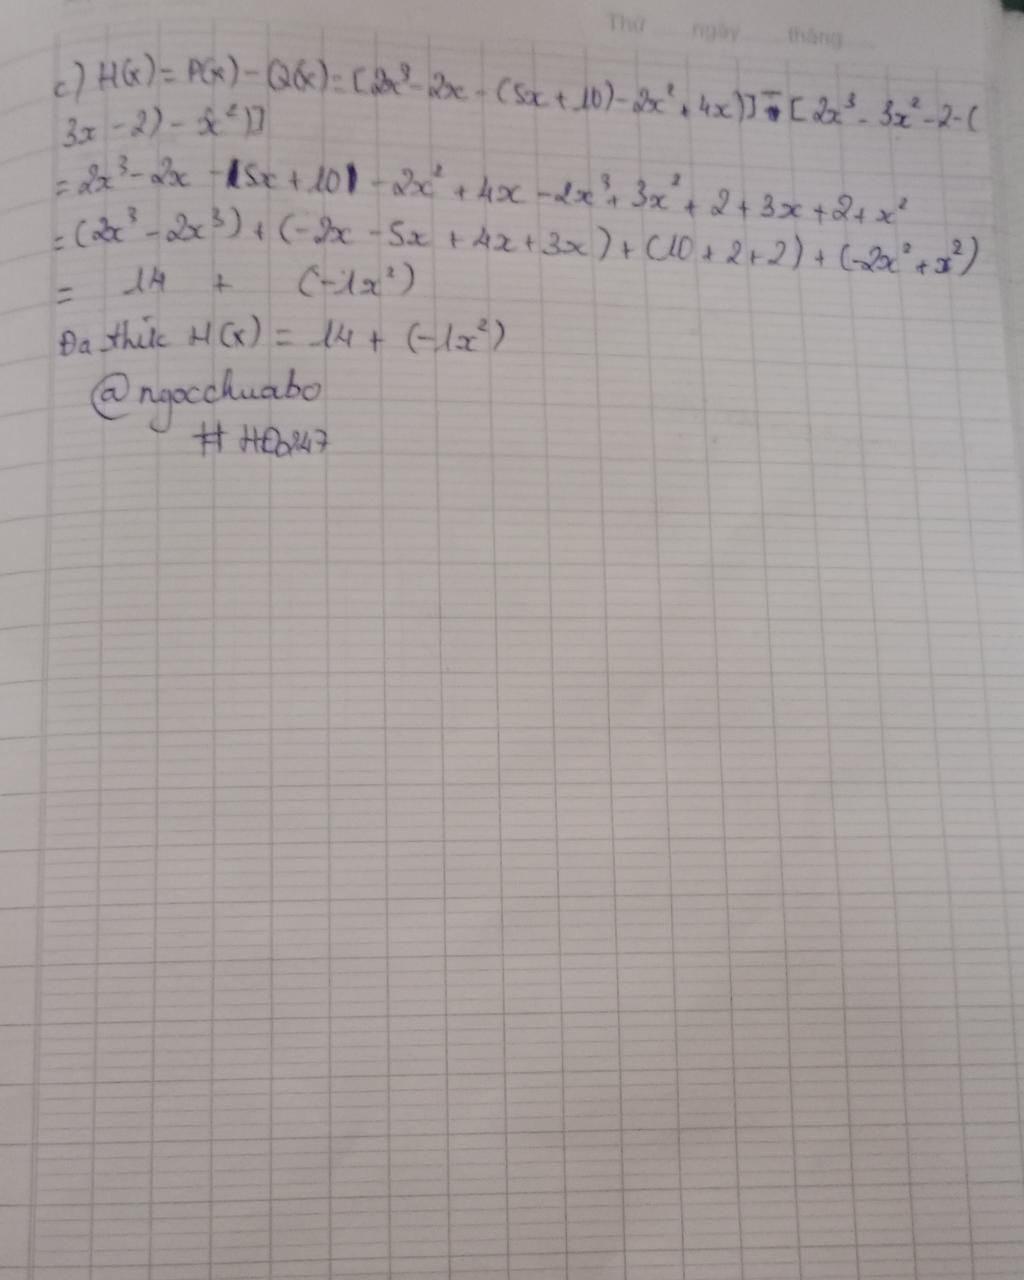 Thứ ngày tháng
c) H(x) = P(x) - Q(x) = [2x³ - 2x - (5x + 10) - 2x² + 4x)] - [2x³ - 3x² - 2 - (
3x - 2) - x²)]
= 2x³ - 2x - (5x + 10) - 2x² + 4x - 2x³ + 3x² + 2 + 3x + 2 + x²
= (2x³ - 2x³) + (-2x - 5x + 4x + 3x) + (10 + 2 + 2) + (-2x² + x²)
= 14 + (-1x²)
Đa thức H(x) = 14 + (-1x²)
@ngocchuabo